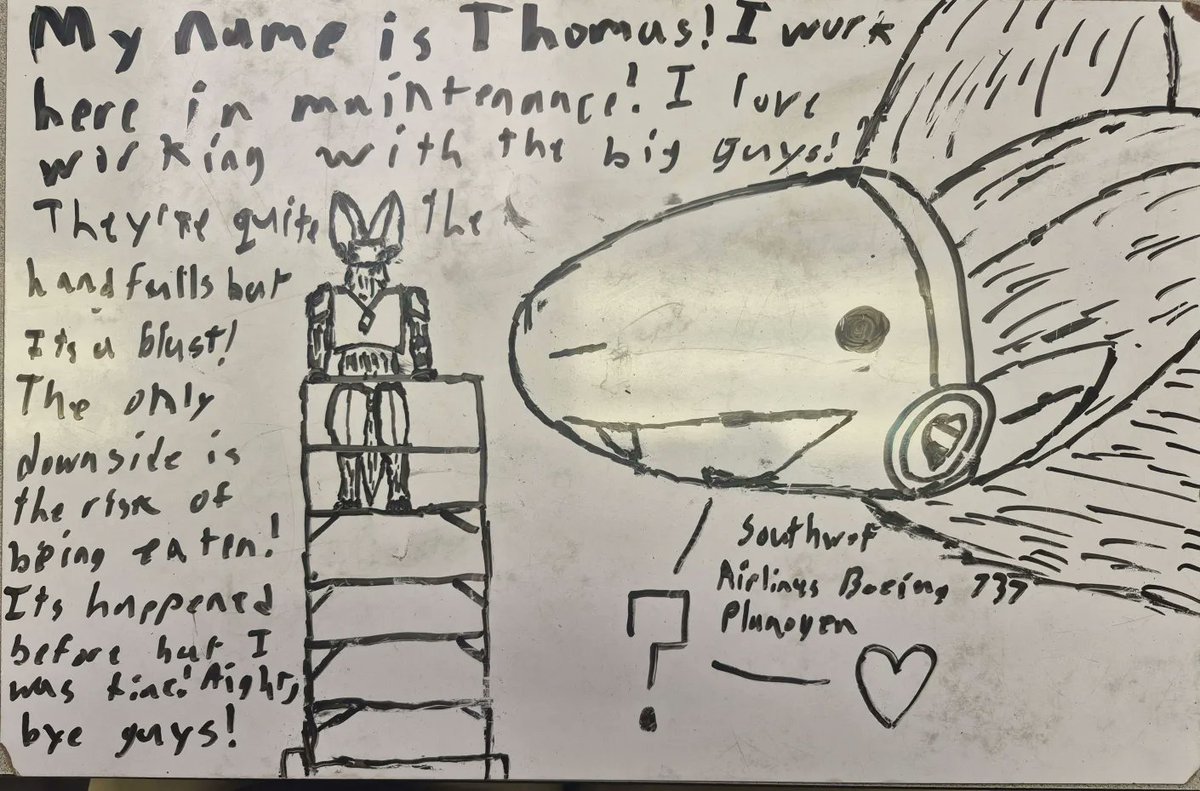 My name is Thomas! I work
here in maintenance! I love
working with the big guys!
They're quite the
handfulls but
Its a blast!
The only
downside is
the risk of
being eaten!
Its happened
before but I
was fine! Aight,
bye guys!
?
Southwof
Airlines Boeing 737
Planoyen